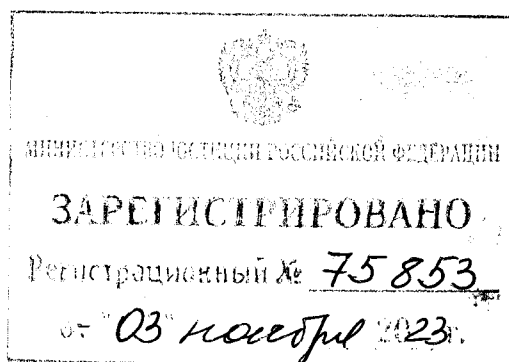 МИНИСТЕРСТВО ЮСТИЦИИ РОССИЙСКОЙ ФЕДЕРАЦИИ
ЗАРЕГИСТРИРОВАНО
Регистрационный № 75853
от "03" ноября 2023г.